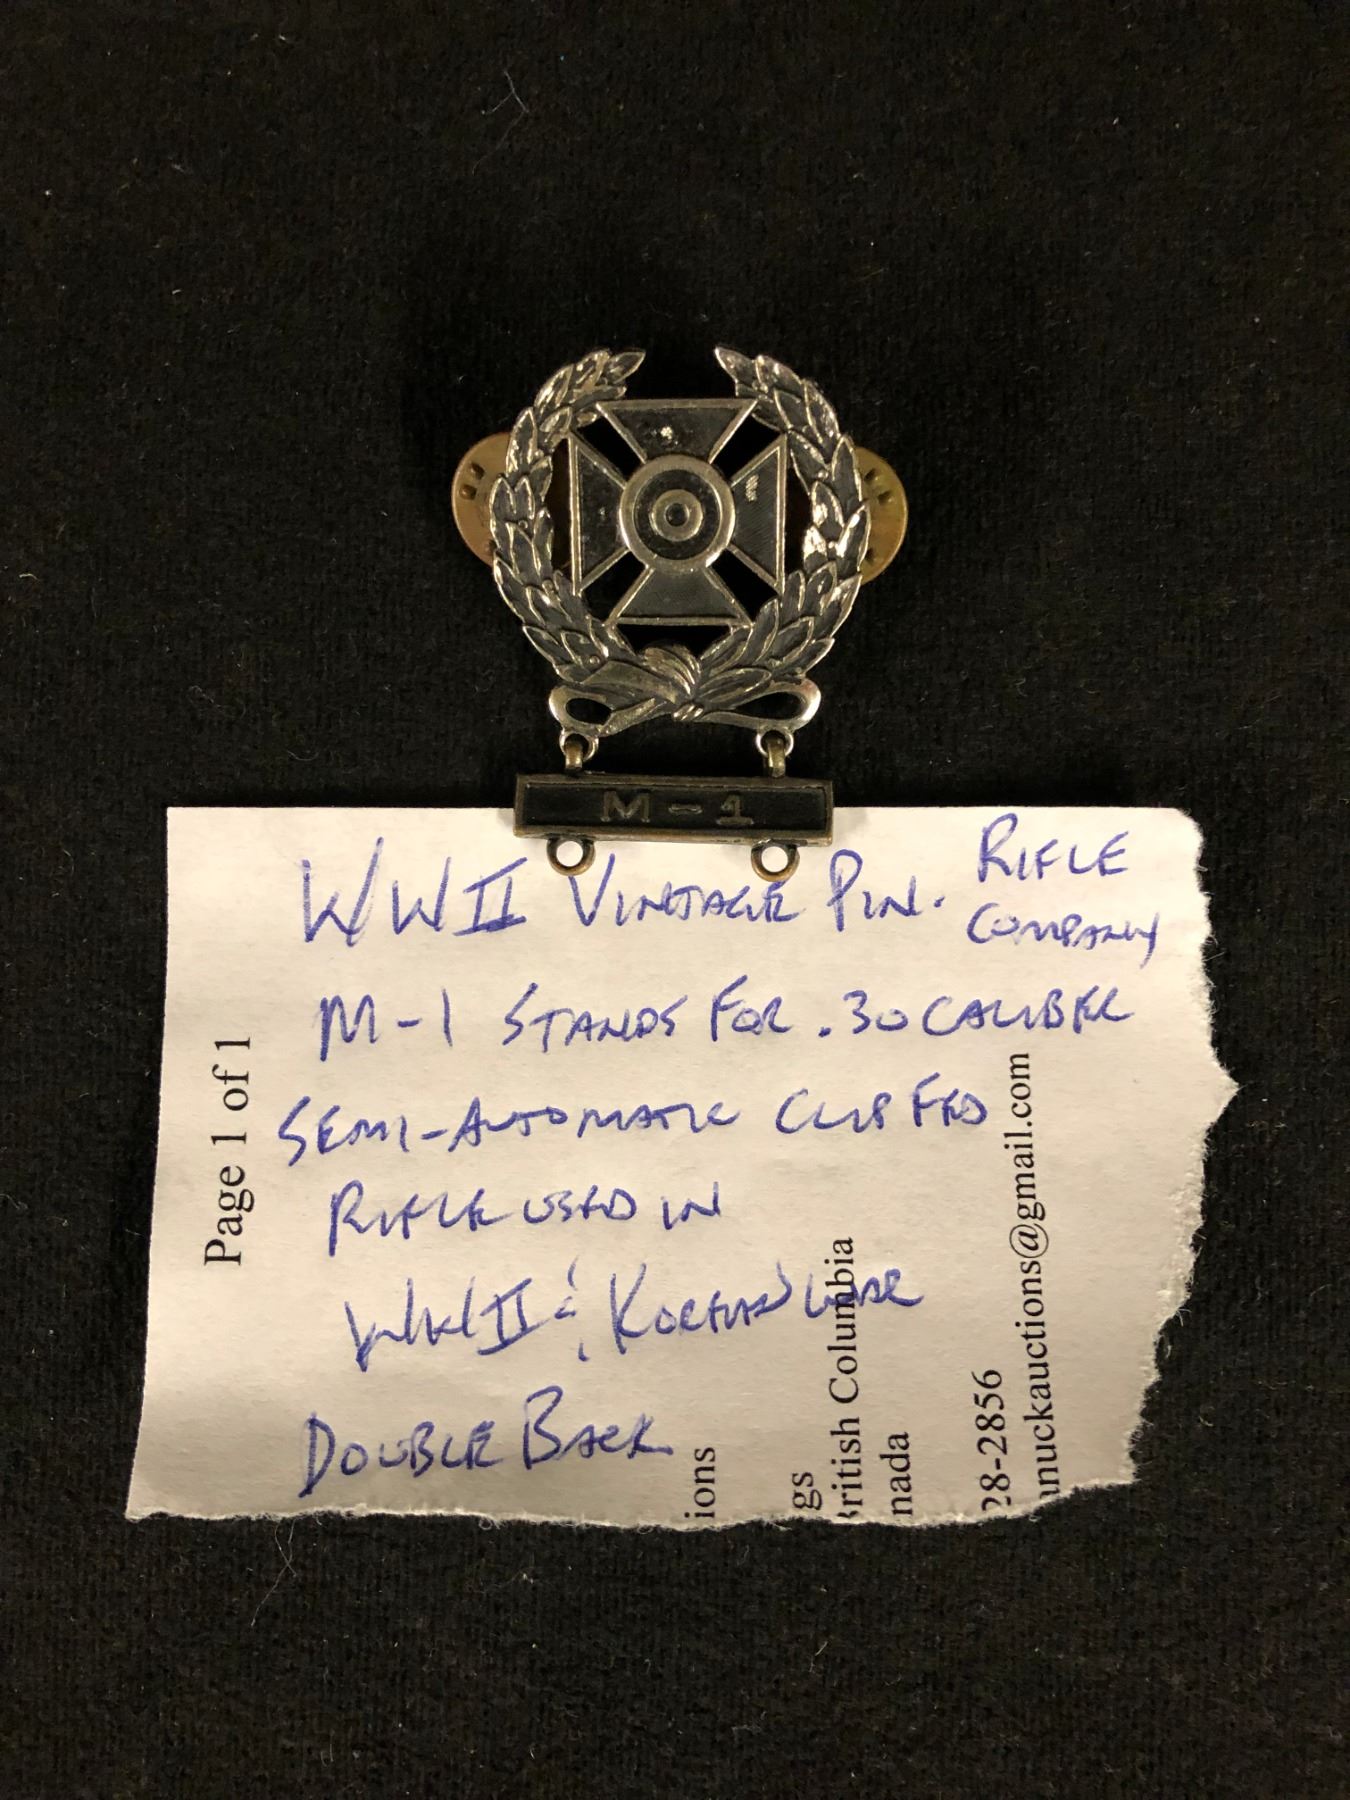 M-1
WWII VINTAGE PIN. RIFLE
COMPANY
M-1 STANDS FOR .30 CALIBER
SEMI-AUTOMATIC CLIP FED
RIFLE USED IN
WWII & KOREAN WAR
DOUBLE BACK
Page 1 of 1
ions
gs
British Columbia
nada
28-2856
anuckauctions@gmail.com